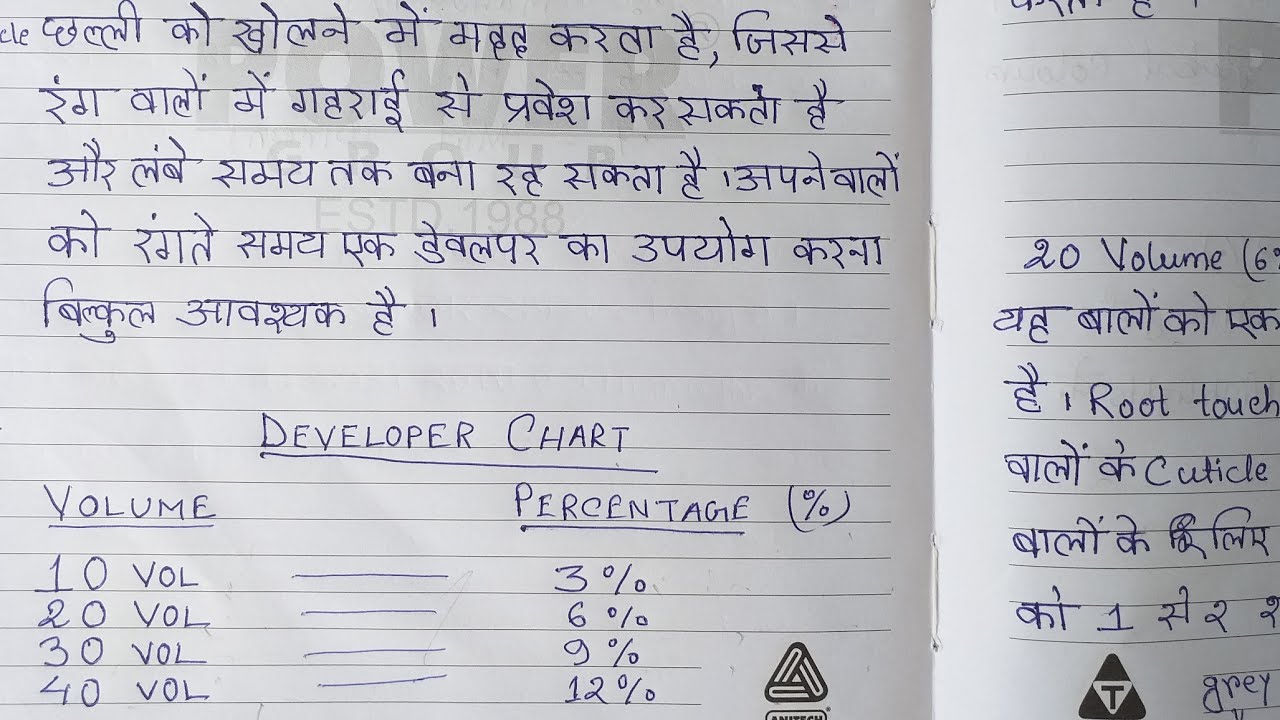 cle छल्ली को खोलने में मदद करता है, जिससे
रंग बालों में गहराई से प्रवेश कर सकता है
और लंबे समय तक बना रह सकता है। अपने बालों
को रंगते समय एक डेवलपर का उपयोग करना
बिल्कुल आवश्यक है।
DEVELOPER CHART
VOLUME PERCENTAGE (%)
10 VOL 3%
20 VOL 6%
30 VOL 9%
40 VOL 12%
ANITECH
20 Volume (6%
यह बालों को एक
है। Root touch
बालों के Cuticle
बालों के लिए
को 1 से २
T
grey
GROUP
ESTD.1988